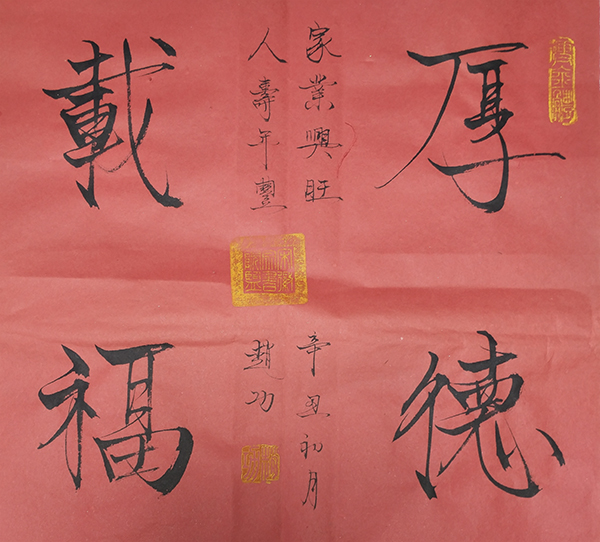 厚德
載福
家業興旺
人壽年豐
辛丑初月
趙功